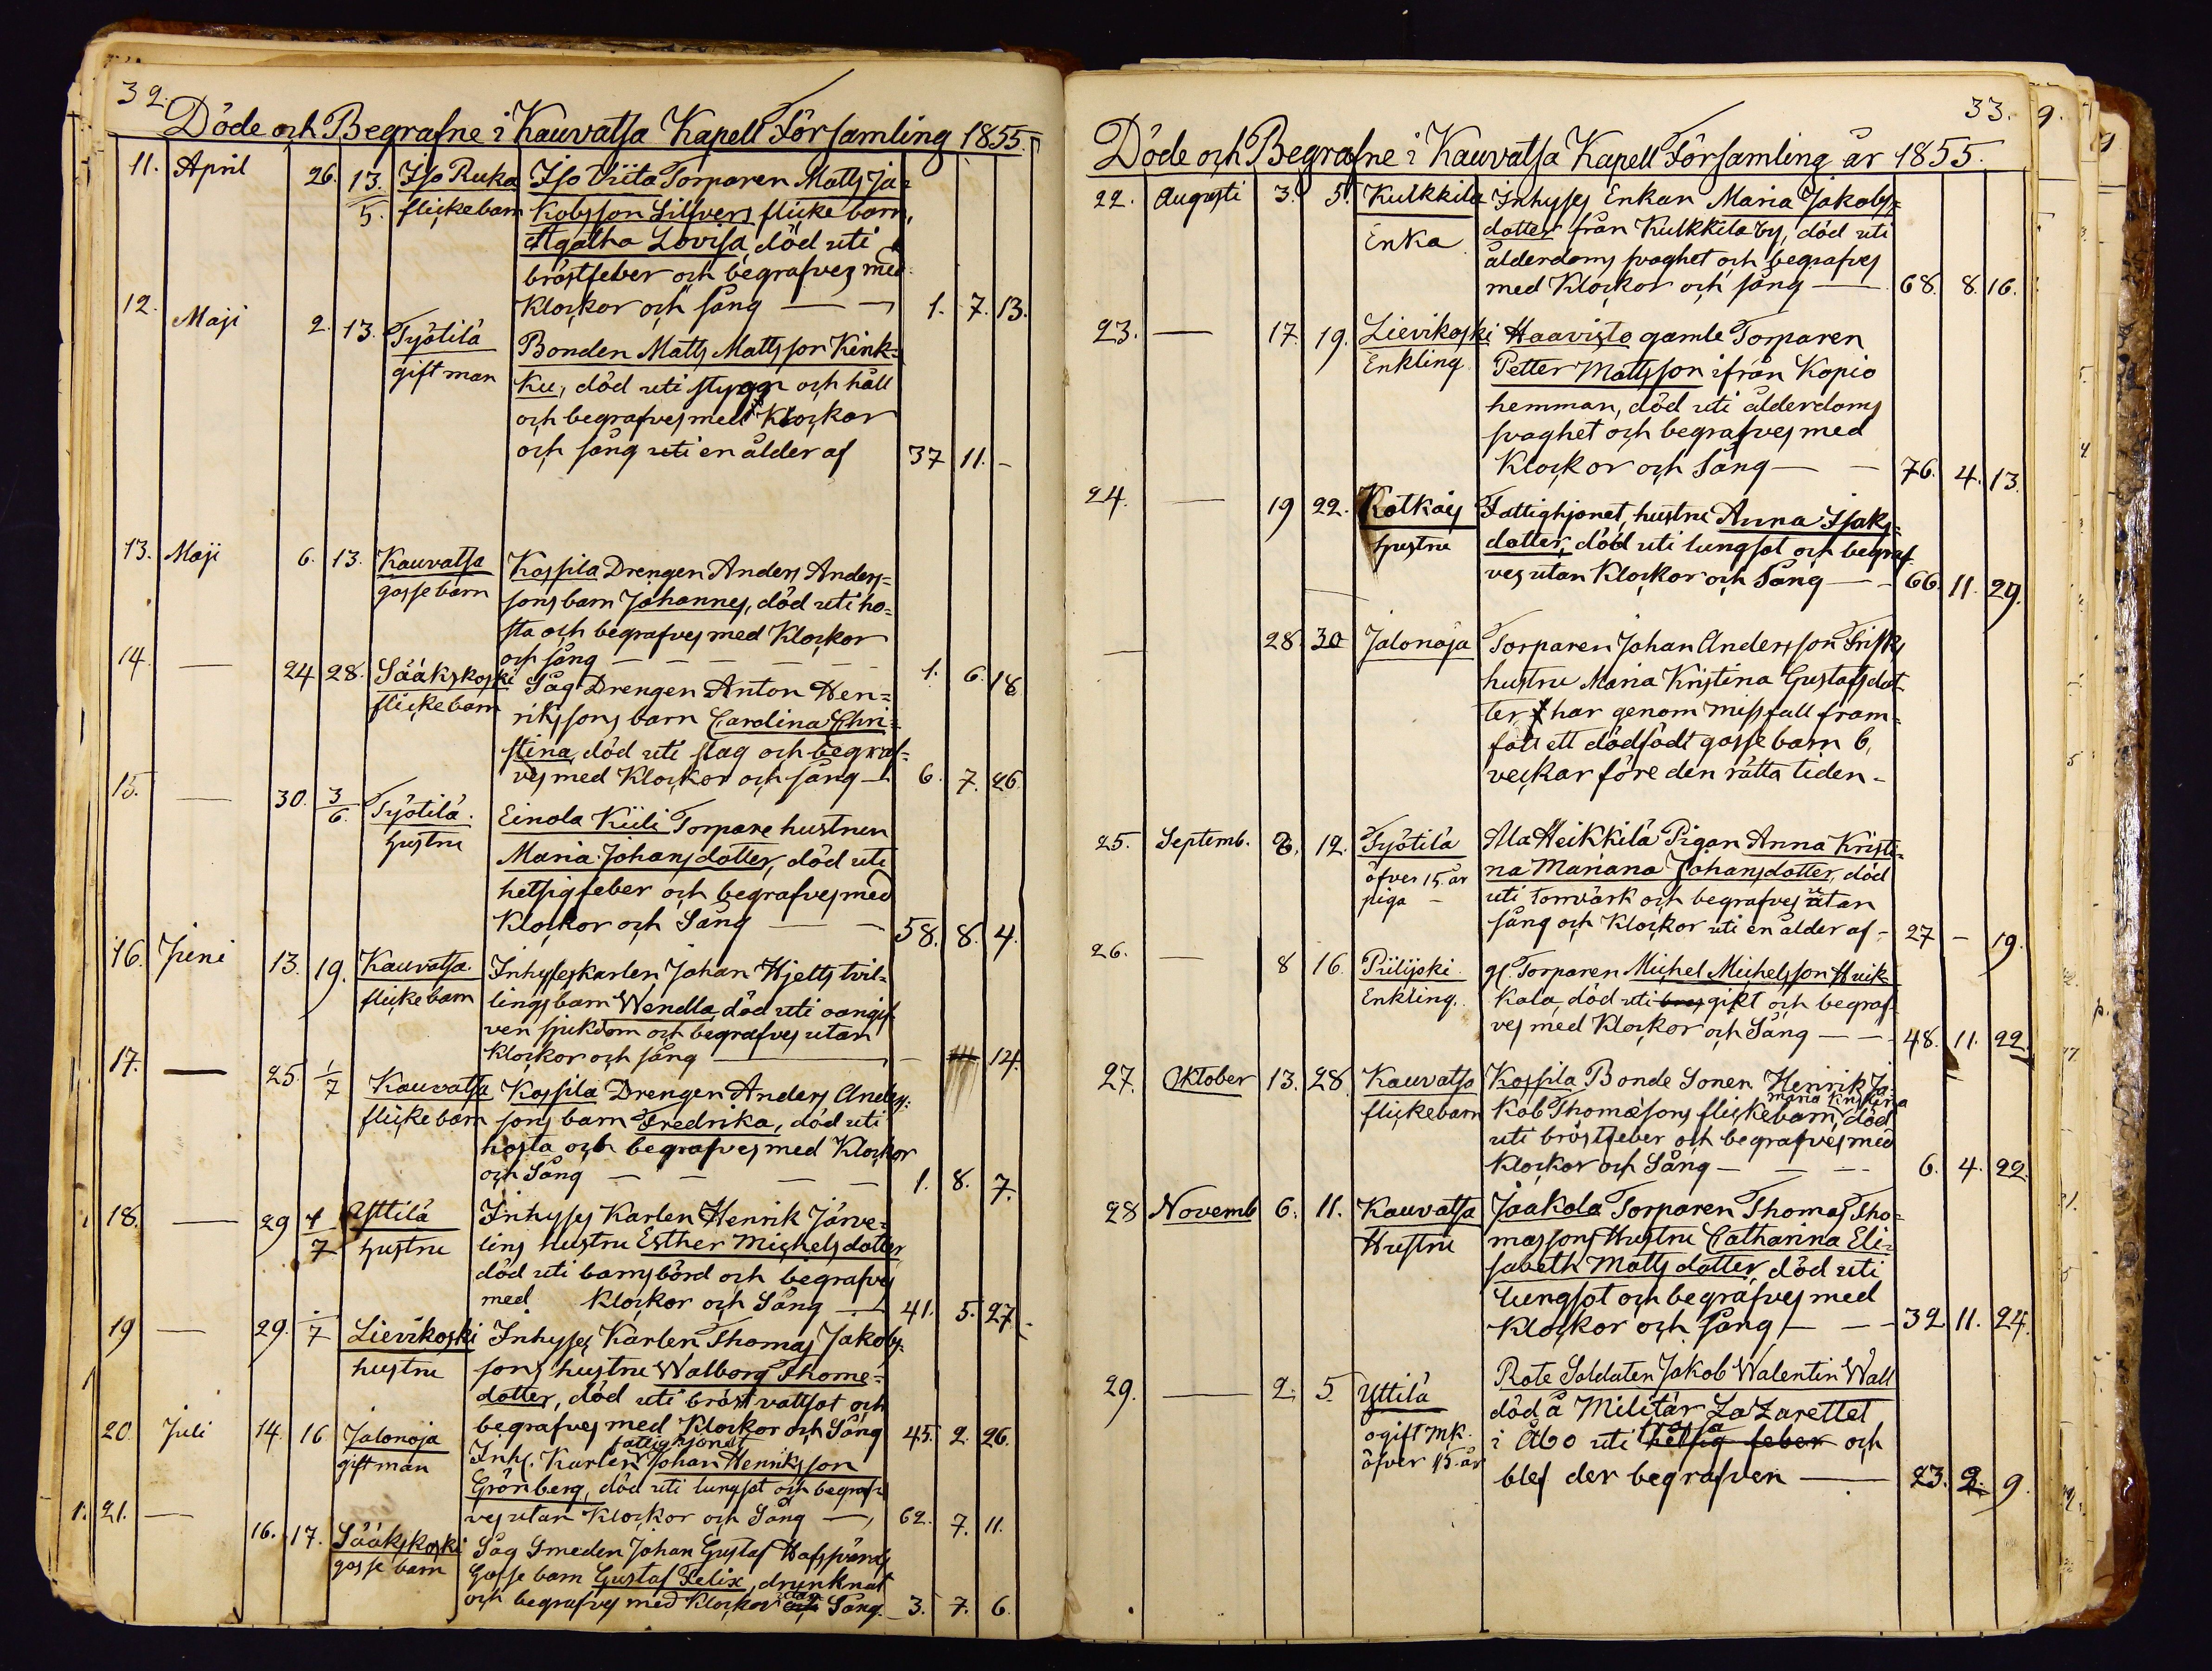 32.
Döde och Begrafne i Kauvatsa Kapell Församling 1855.
11. April 26. 13. Iso Ruka Iso Viita Torparen Matts Ja=
5. flickebarn kobsson Silfvers flicke barn,
Agatha Lovisa, död uti
bröstfeber och begrafves med
Klockor och sång — 1. 7. 13.
12. Maji 2. 13. Työtilä Bonden Matts Mattsson Kink=
gift man ku, död uti stygn och håll
och begrafves med Klockor
och sång uti en ålder af 37 11. -
13. Maji 6. 13. Kauvatsa Kossila Drengen Anders Anders=
gossebarn sons barn Johannes, död uti ho=
sta och begrafves med Klockor
och sång — 1. 6. 18
14. — 24 28. Sääkskoski Såg Drengen Anton Hen=
flickebarn rikssons barn Carolina Chri=
stina, död uti slag och begraf=
ves med Klockor och sång — 6. 7. 26
15. — 30. 3/6. Työtilä. Einola Kiili Torpare hustrun
hustru Maria Johansdotter, död uti
hetsigfeber och begrafves med
Klockor och Sång — 58. 8. 4.
16. Juni 13. 19. Kauvatsa. Inhyseskarlen Johan Hjelts tvil-
flickebarn lings barn Wendla, död uti oangif
ven sjukdom och begrafves utan
Klockor och sång — — 14.
17. — 25. 1/7 Kauvatsa Kossila Drengen Anders Anders=
flickebarn sons barn Fredrika, död uti
hosta och begrafves med Klockor
och Sång — 1. 8. 7.
18. — 29 1/7 Yttilä Inhyses Karlen Henrik Järve=
hustru lins hustru Esther Michelsdotter
död uti barnsbörd och begrafves
med Klockor och Sång — 41. 5. 27.
19 — 29. 1/7 Lievikoski Inhyses Karlen Thomas Jakobs-
hustru sons hustru Walborg Thome=
dotter, död uti bröstvattsot och
begrafves med Klockor och Sång 45. 2. 26.
fattighjonet
20. Juli 14. 16 Jalonoja Inh. Karlen Johan Henriksson
gift man Grönberg, död uti lungsot och begraf=
ves utan Klockor och Sång — 62. 7. 11.
1. 21. — 16. 17. Sääkskoski Såg Smeden Johan Gustaf Hafsvärds
gosse barn Gosse barn Gustaf Felix, drunknat
och begrafves med Klockor utan Sång. 3. 7. 6.
33.
Döde och Begrafne i Kauvatsa Kapell Församling år 1855.
22. Augusti 3. 5. Kulkkila Inhyses Enkan Maria Jakobs=
Enka dotter från Kulkkila by, död uti
ålderdoms svaghet och begrafves
med Klockor och sång — 68. 8. 16.
23. — 17. 19. Lievikoski Haavisto gamle Torparen
Enkling. Petter Mattsson ifrån Kopio
hemman, död uti ålderdoms
svaghet och begrafves med
Klockor och Sång — 76. 4. 13.
24. — 19 22. Kotkais Fattighjonet, hustru Anna Isaks=
hustru dotter, död uti lungsot och begraf
ves utan Klockor och Sång — 66. 11. 29.
— 28. 30 Jalonoja Torparen Johan Andersson Frisks
hustru Maria Kristina Gustafsdot
ter har genom missfall fram=
födt ett dödfödt gosse barn 6,
veckor före den rätta tiden.
25. Septemb. 8. 12. Työtilä Ala Heikkilä Pigan Anna Kristi=
öfver 15. år na Mariana Johansdotter, död
piga uti tornvärk och begrafves utan
sång och Klockor uti en ålder af - 27 — 19.
26. — 8 16. Piilijoki gl. Torparen Michel Michelsson Huik-
Enkling. kala, död uti gikt och begraf
ves med Klockor och Sång — 48. 11. 22.
27. Oktober 13. 28. Kauvatsa Kossila Bonde Sonen Henrik Ja-
Maria Kristina
flickebarn kob Thomæsons flickebarn, död
uti bröstfeber och begrafves med
Klockor och Sång — 6. 4. 22.
28 Novemb 6. 11. Kauvatsa Jaakola Torparen Thomas Tho=
Hustru massons Hustru Catharina Eli=
sabeth Mattsdotter, död uti
lungsot och begrafves med
Klockor och sång — 32 11. 24.
29. — 2. 5. Yttilä Rote Soldaten Jakob Walentin Wall
ogift mk. död å Militär Lazarettet
öfver 15. år i Åbo uti hetsig feber och
blef der begrafven — 23. 2. 9.